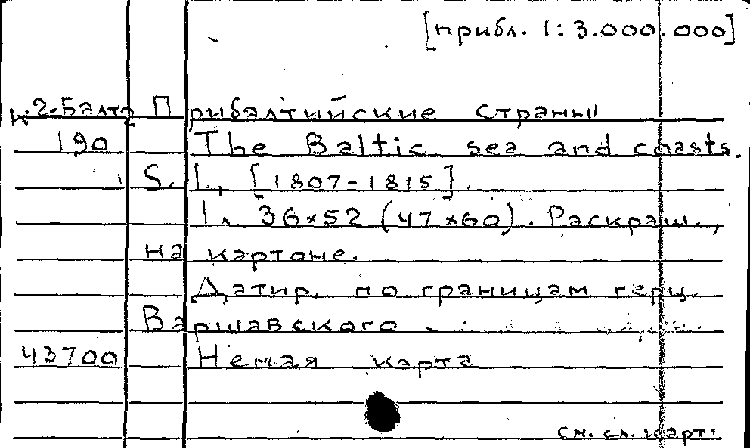 [прибл. 1:3.000.000]
К.2-Балт2 Прибалтийские страны
190 The Baltic sea and coasts.
S. l., [1807-1815].
1 л. 36×52 (47×60). Раскраш.,
на картоне.
Датир. по границам герц.
Варшавского
43700 Немая карта
см. сл. карт.